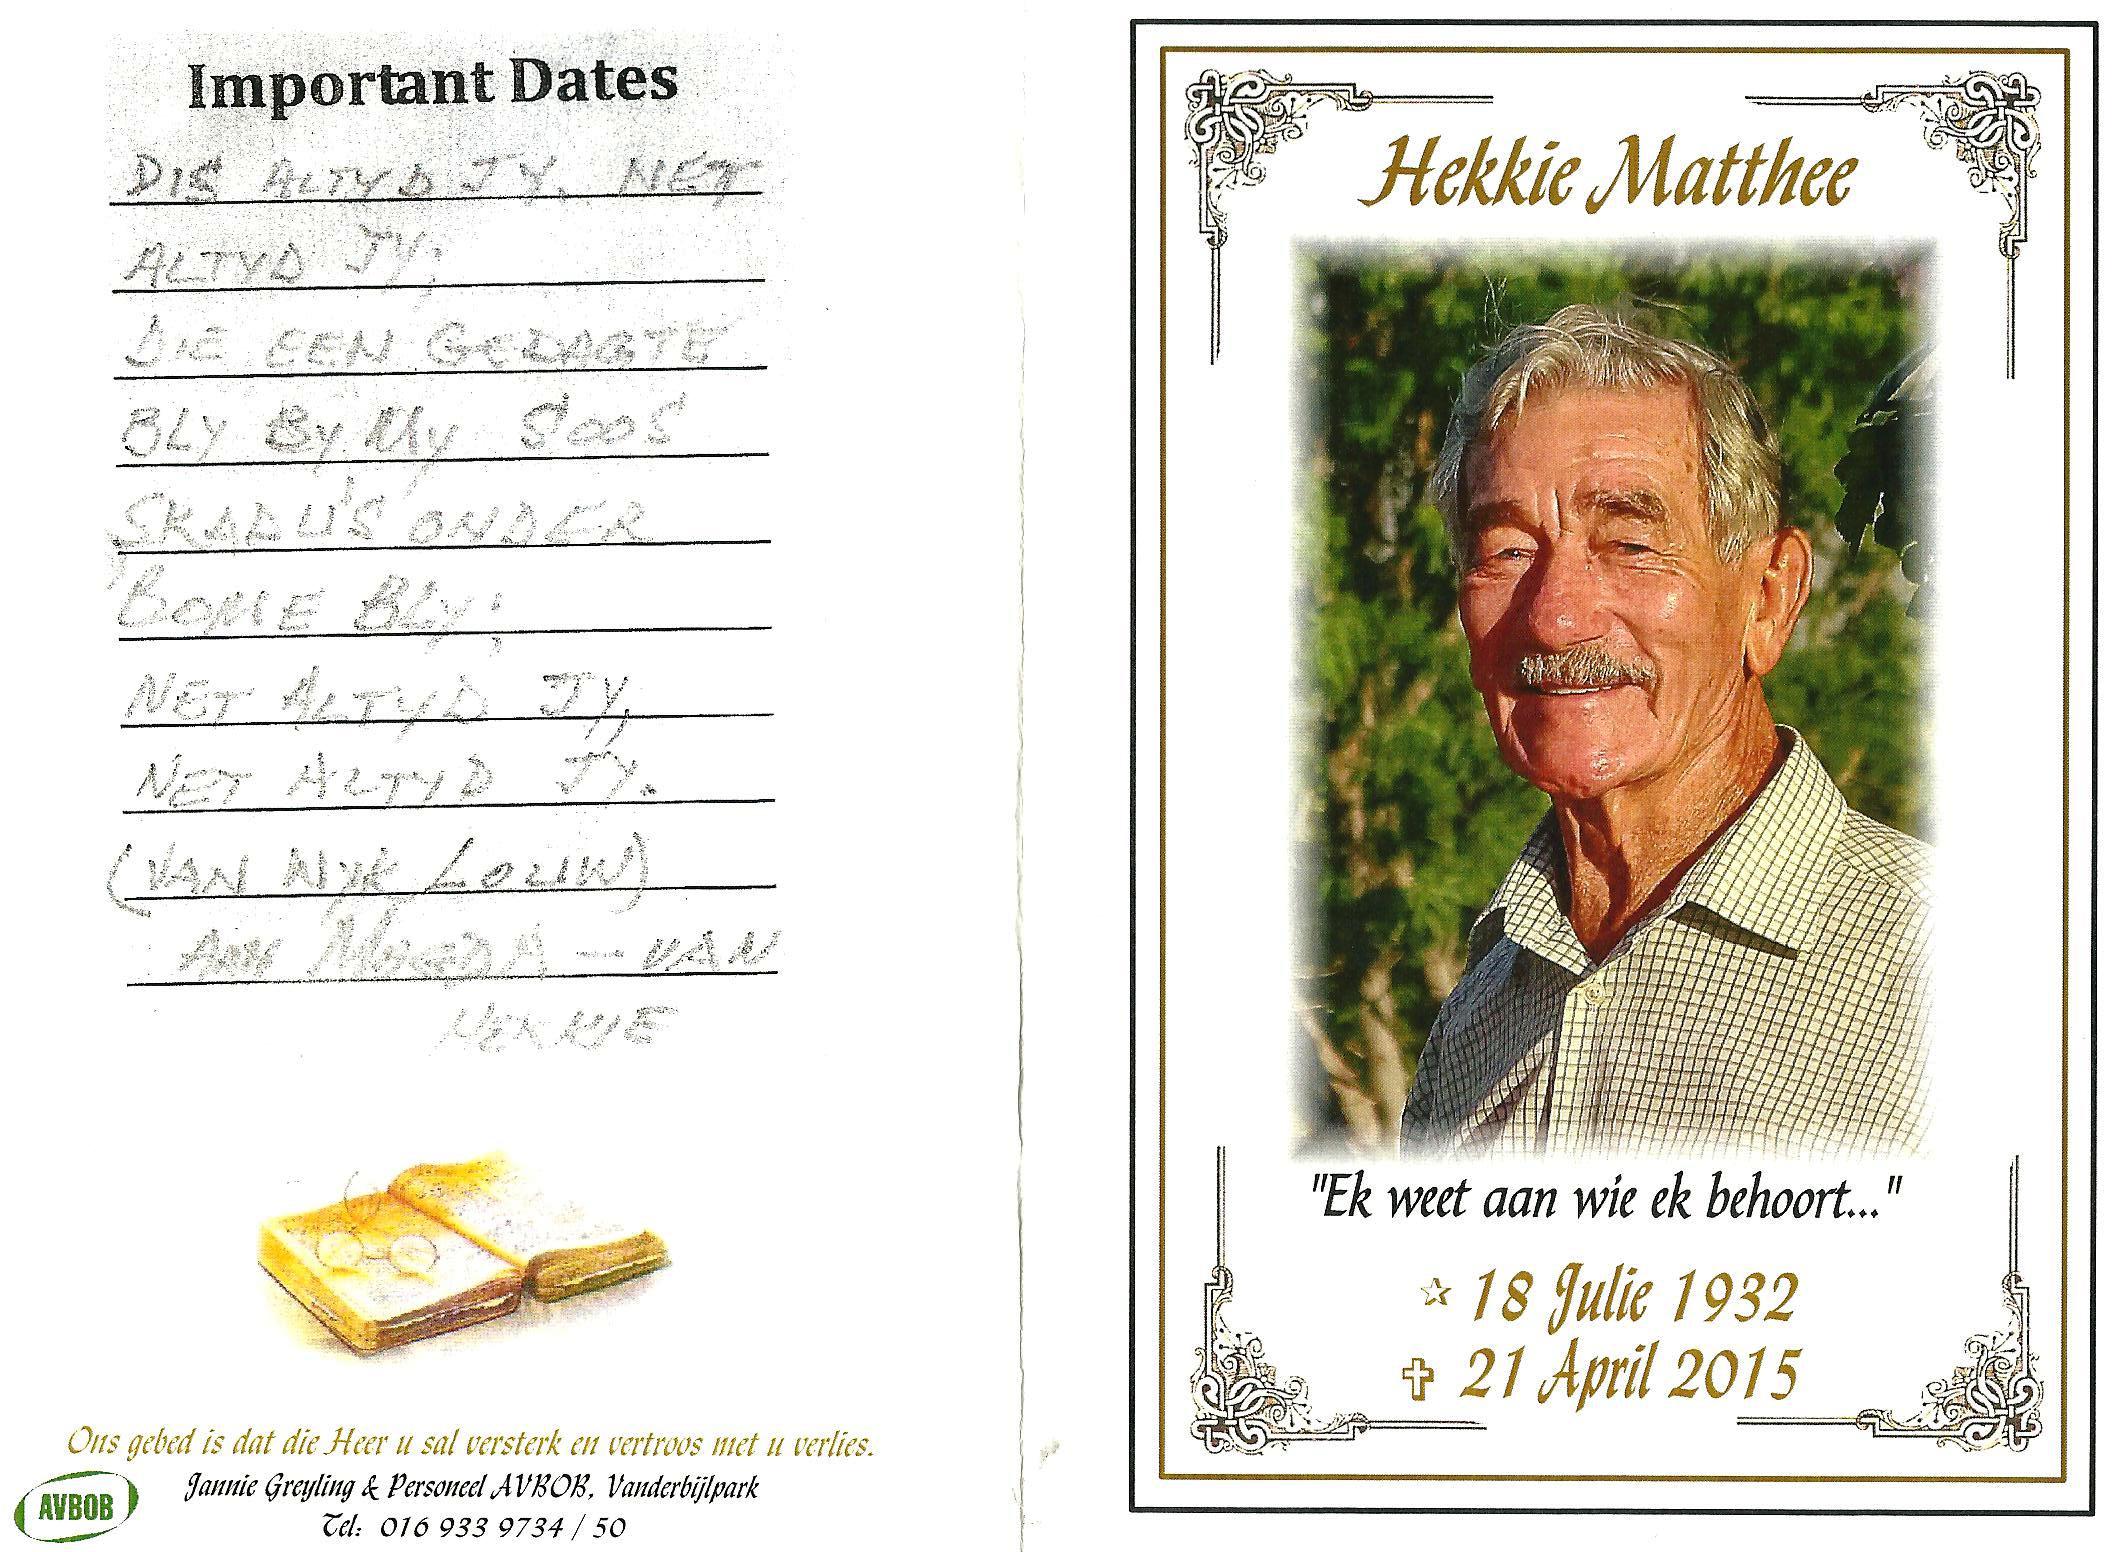 Important Dates
DIS ALTYD JY, NET
ALTYD JY;
DIE EEN GEDAGTE
BLY BY MY SOOS
SKADU'S ONDER
BOME BLY;
NET ALTYD JY,
NET ALTYD JY.
(VAN WYK LOUW)
MAGDA — VAN
HEKKIE
Ons gebed is dat die Heer u sal versterk en vertroos met u verlies.
Jannie Greyling & Personeel AVBOB, Vanderbijlpark
Tel: 016 933 9734 / 50
AVBOB
Hekkie Matthee
"Ek weet aan wie ek behoort..."
☆ 18 Julie 1932
✞ 21 April 2015